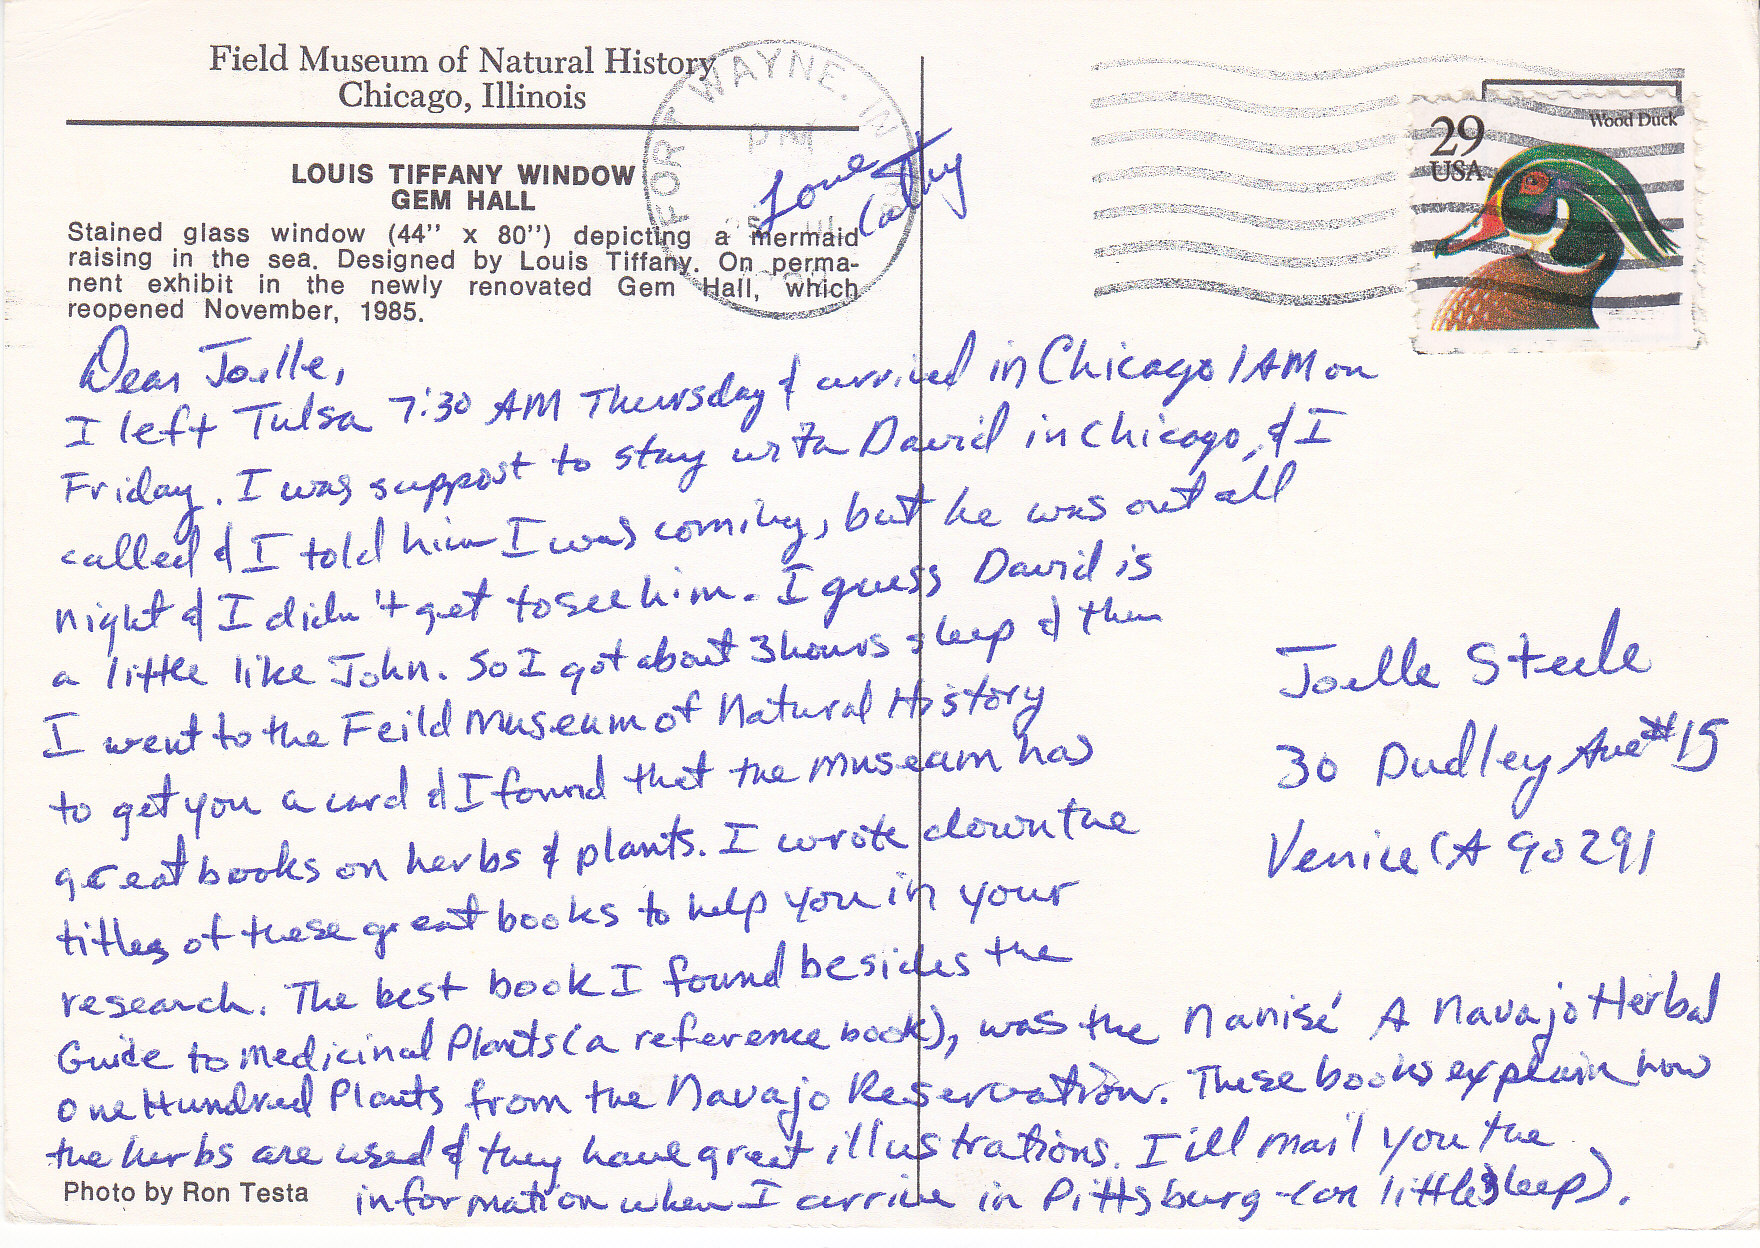 Field Museum of Natural History
Chicago, Illinois
LOUIS TIFFANY WINDOW
GEM HALL
Stained glass window (44" x 80") depicting a mermaid
raising in the sea. Designed by Louis Tiffany. On perma-
nent exhibit in the newly renovated Gem Hall, which
reopened November, 1985.
FORT WAYNE, IN
PM
Love
Cathy
29
USA
Wood Duck
Dear Joelle,
I left Tulsa 7:30 AM Thursday & arrived in Chicago 1 AM on
Friday. I was suppost to stay with David in Chicago, & I
called & I told him I was coming, but he was out all
night & I didn't get to see him. I guess David is
a little like John. So I got about 3 hours sleep & then
I went to the Feild Museum of Natural History
to get you a card & I found that the museum has
great books on herbs & plants. I wrote down the
titles of these great books to help you in your
research. The best book I found besides the
Guide to Medicinal Plants (a reference book), was the Nanisé A Navajo Herbal
One Hundred Plants from the Navajo Reservation. These books explain how
the herbs are used & they have great illustrations. I ill mail you the
information when I arrive in Pittsburg - (on little sleep).
Joelle Steele
30 Dudley Ave #15
Venice CA 90291
Photo by Ron Testa